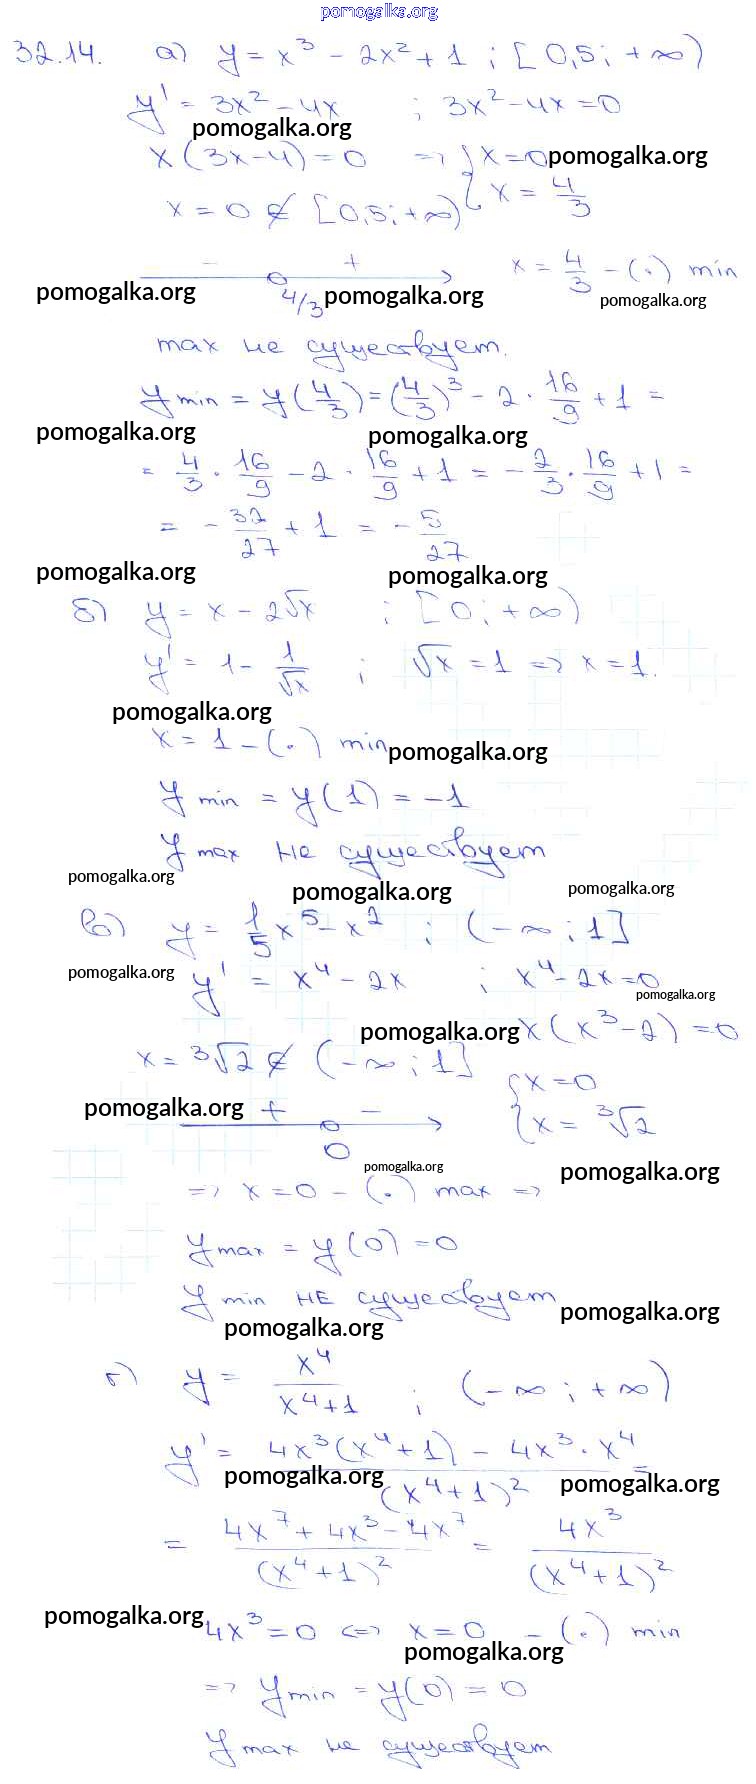 pomogalka.org
32.14. а) y = x³ - 2x² + 1 ; [0,5; +∞)
y' = 3x² - 4x ; 3x² - 4x = 0
pomogalka.org
x(3x-4) = 0 => { x = 0 pomogalka.org
x = 4/3
x = 0 ∉ [0,5; +∞)
- + x = 4/3 - (·) min
pomogalka.org 4/3 pomogalka.org pomogalka.org
max не существует.
y min = y(4/3) = (4/3)³ - 2 · 16/9 + 1 =
pomogalka.org pomogalka.org
= 4/3 · 16/9 - 2 · 16/9 + 1 = -2/3 · 16/9 + 1 =
= -32/27 + 1 = -5/27
pomogalka.org pomogalka.org
б) y = x - 2√x ; [0; +∞)
y' = 1 - 1/√x ; √x = 1 => x = 1.
pomogalka.org
x = 1 - (·) min pomogalka.org
y min = y(1) = -1
y max не существует
pomogalka.org pomogalka.org pomogalka.org
в) y = 1/5 x⁵ - x² ; (-∞; 1]
pomogalka.org y' = x⁴ - 2x ; x⁴ - 2x = 0
pomogalka.org
pomogalka.org x(x³-2) = 0
x = ³√2 ∉ (-∞; 1] { x = 0
pomogalka.org + - x = ³√2
0
pomogalka.org pomogalka.org
=> x = 0 - (·) max =>
y max = y(0) = 0
y min не существует pomogalka.org
pomogalka.org
г) y = x⁴/(x⁴+1) ; (-∞; +∞)
y' = (4x³(x⁴+1) - 4x³ · x⁴)/(x⁴+1)² =
pomogalka.org pomogalka.org
= (4x⁷ + 4x³ - 4x⁷)/(x⁴+1)² = 4x³/(x⁴+1)²
pomogalka.org 4x³ = 0 <=> x = 0 - (·) min
pomogalka.org
=> y min = y(0) = 0
y max не существует